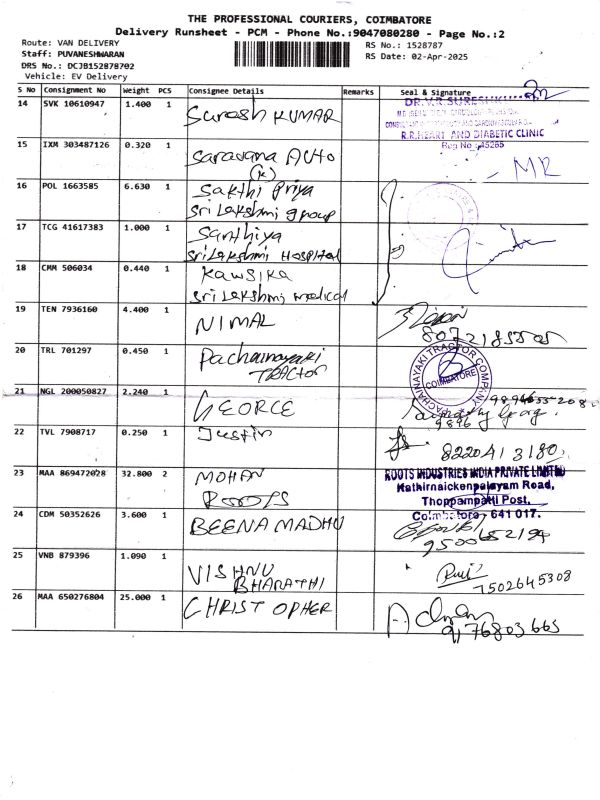 THE PROFESSIONAL COURIERS, COIMBATORE
Delivery Runsheet - PCM - Phone No.:9047080280 - Page No.:2
Route: VAN DELIVERY
RS No.: 1528787
Staff: PUVANESHWARAN
RS Date: 02-Apr-2025
DRS No.: DCJB152878702
Vehicle: EV Delivery
S No Consignment No Weight PCS Consignee Details Remarks Seal & Signature
14 SVK 10610947 1.400 1 Suresh KUMAR
DR.V.R.SURESH
R.R.HEART AND DIABETIC CLINIC
Reg No: 45265
15 IXM 303487126 0.320 1 Saravana Auto
(K)
- MR
16 POL 1663585 6.630 1 Sakthi Priya
Sri Lakshmi group
17 TCG 41617383 1.000 1 Santhiya
Sri Lakshmi Hospital
18 CMM 506034 0.440 1 Kawsika
Sri Lakshmi medical
19 TEN 7936160 4.400 1 NIMAL
20 TRL 701297 0.450 1 Pachainayaki
TRACTOR
PACHAINAYAKI TRACTOR COMPANY
COIMBATORE
21 NGL 200050827 2.240 1 GEORGE
22 TVL 7908717 0.250 1 Justin
8220413180
23 MAA 869472028 32.800 2 MOHAN
ROOTS
ROOTS INDUSTRIES INDIA PRIVATE LIMITED
Kathirnaickenpalayam Road,
Thoppampatti Post,
Coimbatore - 641 017.
24 CDM 50352626 3.600 1 BEENA MADHU
9500652194
25 VNB 879396 1.090 1 VISHNU
BHARATHI
7502645308
26 MAA 650276804 25.000 1 CHRISTOPHER
9176803665